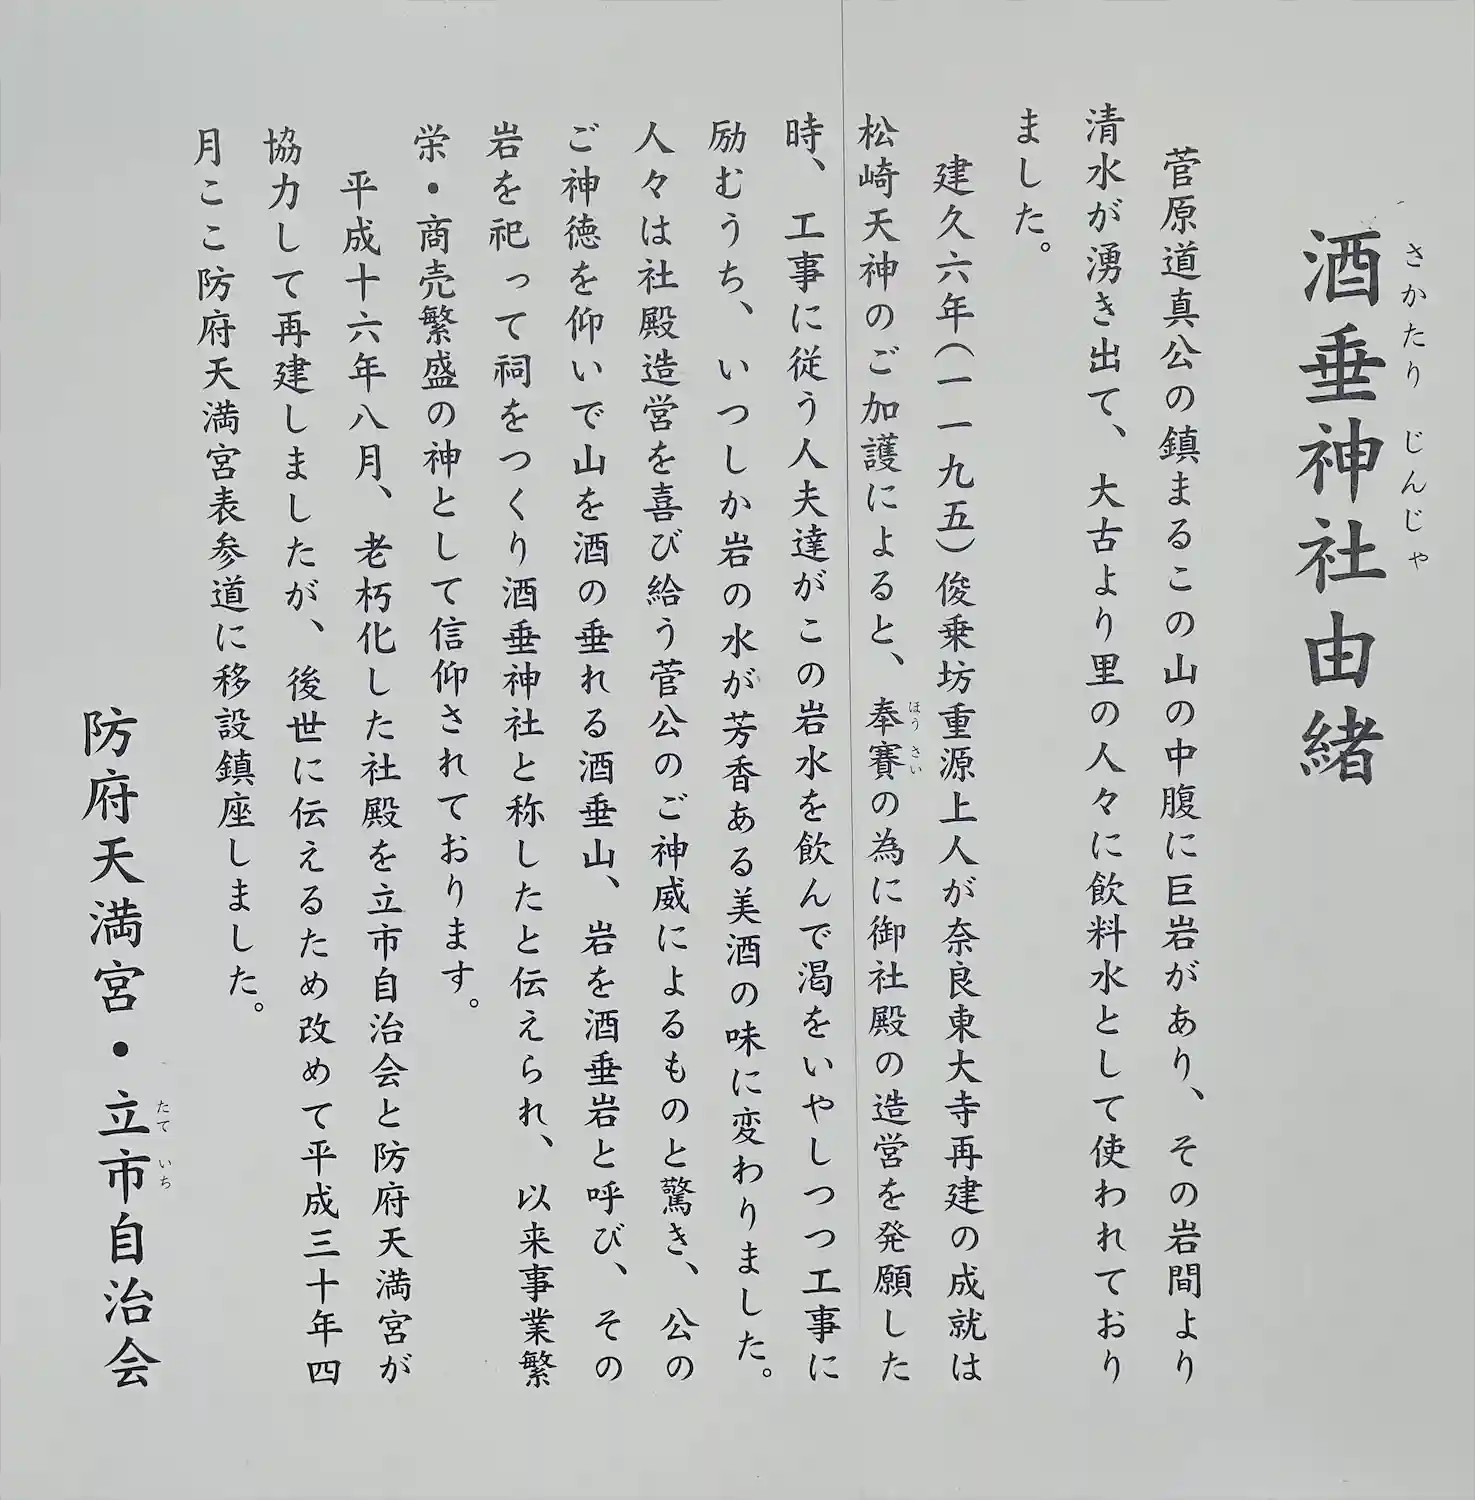 酒垂神社由緒
さかたり じんじゃ
菅原道真公の鎮まるこの山の中腹に巨岩があり、その岩間より
清水が湧き出て、大古より里の人々に飲料水として使われており
ました。
建久六年(一一九五)俊乗坊重源上人が奈良東大寺再建の成就は
松崎天神のご加護によると、奉賽の為に御社殿の造営を発願した
ほう さい
時、工事に従う人夫達がこの岩水を飲んで渇をいやしつつ工事に
励むうち、いつしか岩の水が芳香ある美酒の味に変わりました。
人々は社殿造営を喜び給う菅公のご神威によるものと驚き、公の
ご神徳を仰いで山を酒の垂れる酒垂山、岩を酒垂岩と呼び、その
岩を祀って祠をつくり酒垂神社と称したと伝えられ、以来事業繁
栄・商売繁盛の神として信仰されております。
平成十六年八月、老朽化した社殿を立市自治会と防府天満宮が
協力して再建しましたが、後世に伝えるため改めて平成三十年四
月ここ防府天満宮表参道に移設鎮座しました。
防府天満宮・立市自治会
たて いち